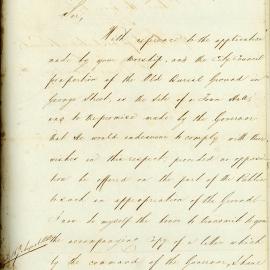 Sir,
With reference to the application
made by your Worship, and the City Council
for a portion of the Old Burial Ground in
George Street, as the site of a Town Hall,
and to the promise made by the Governor
that He would endeavour to comply with their
wishes in this respect, provided no opposi-
tion be offered on the part of the Public
to such an appropriation of the Ground
I now do myself the honor to transmit to you
the accompanying Copy of a letter which
by the command of the Governor, I have